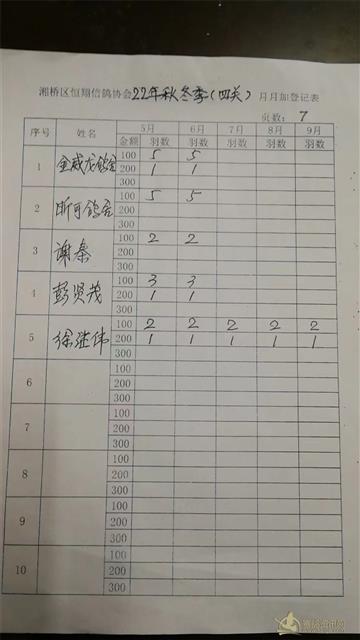 湘桥区恒翔信鸽协会22年秋冬季(四关)月月加登记表
页数: 7
序号 姓名 5月 6月 7月 8月 9月
金额 羽数 羽数 羽数 羽数 羽数
1 金威龙鸽舍 100 5 5
200 1 1
300
2 昕可鸽舍 100 5 5
200
300
3 谢秦 100 2 2
200
300
4 彭贤茂 100 3 3
200 1 1
300
5 徐继伟 100 2 2 2 2 2
200 1 1 1 1 1
300
6 100
200
300
7 100
200
300
8 100
200
300
9 100
200
300
10 100
200
300